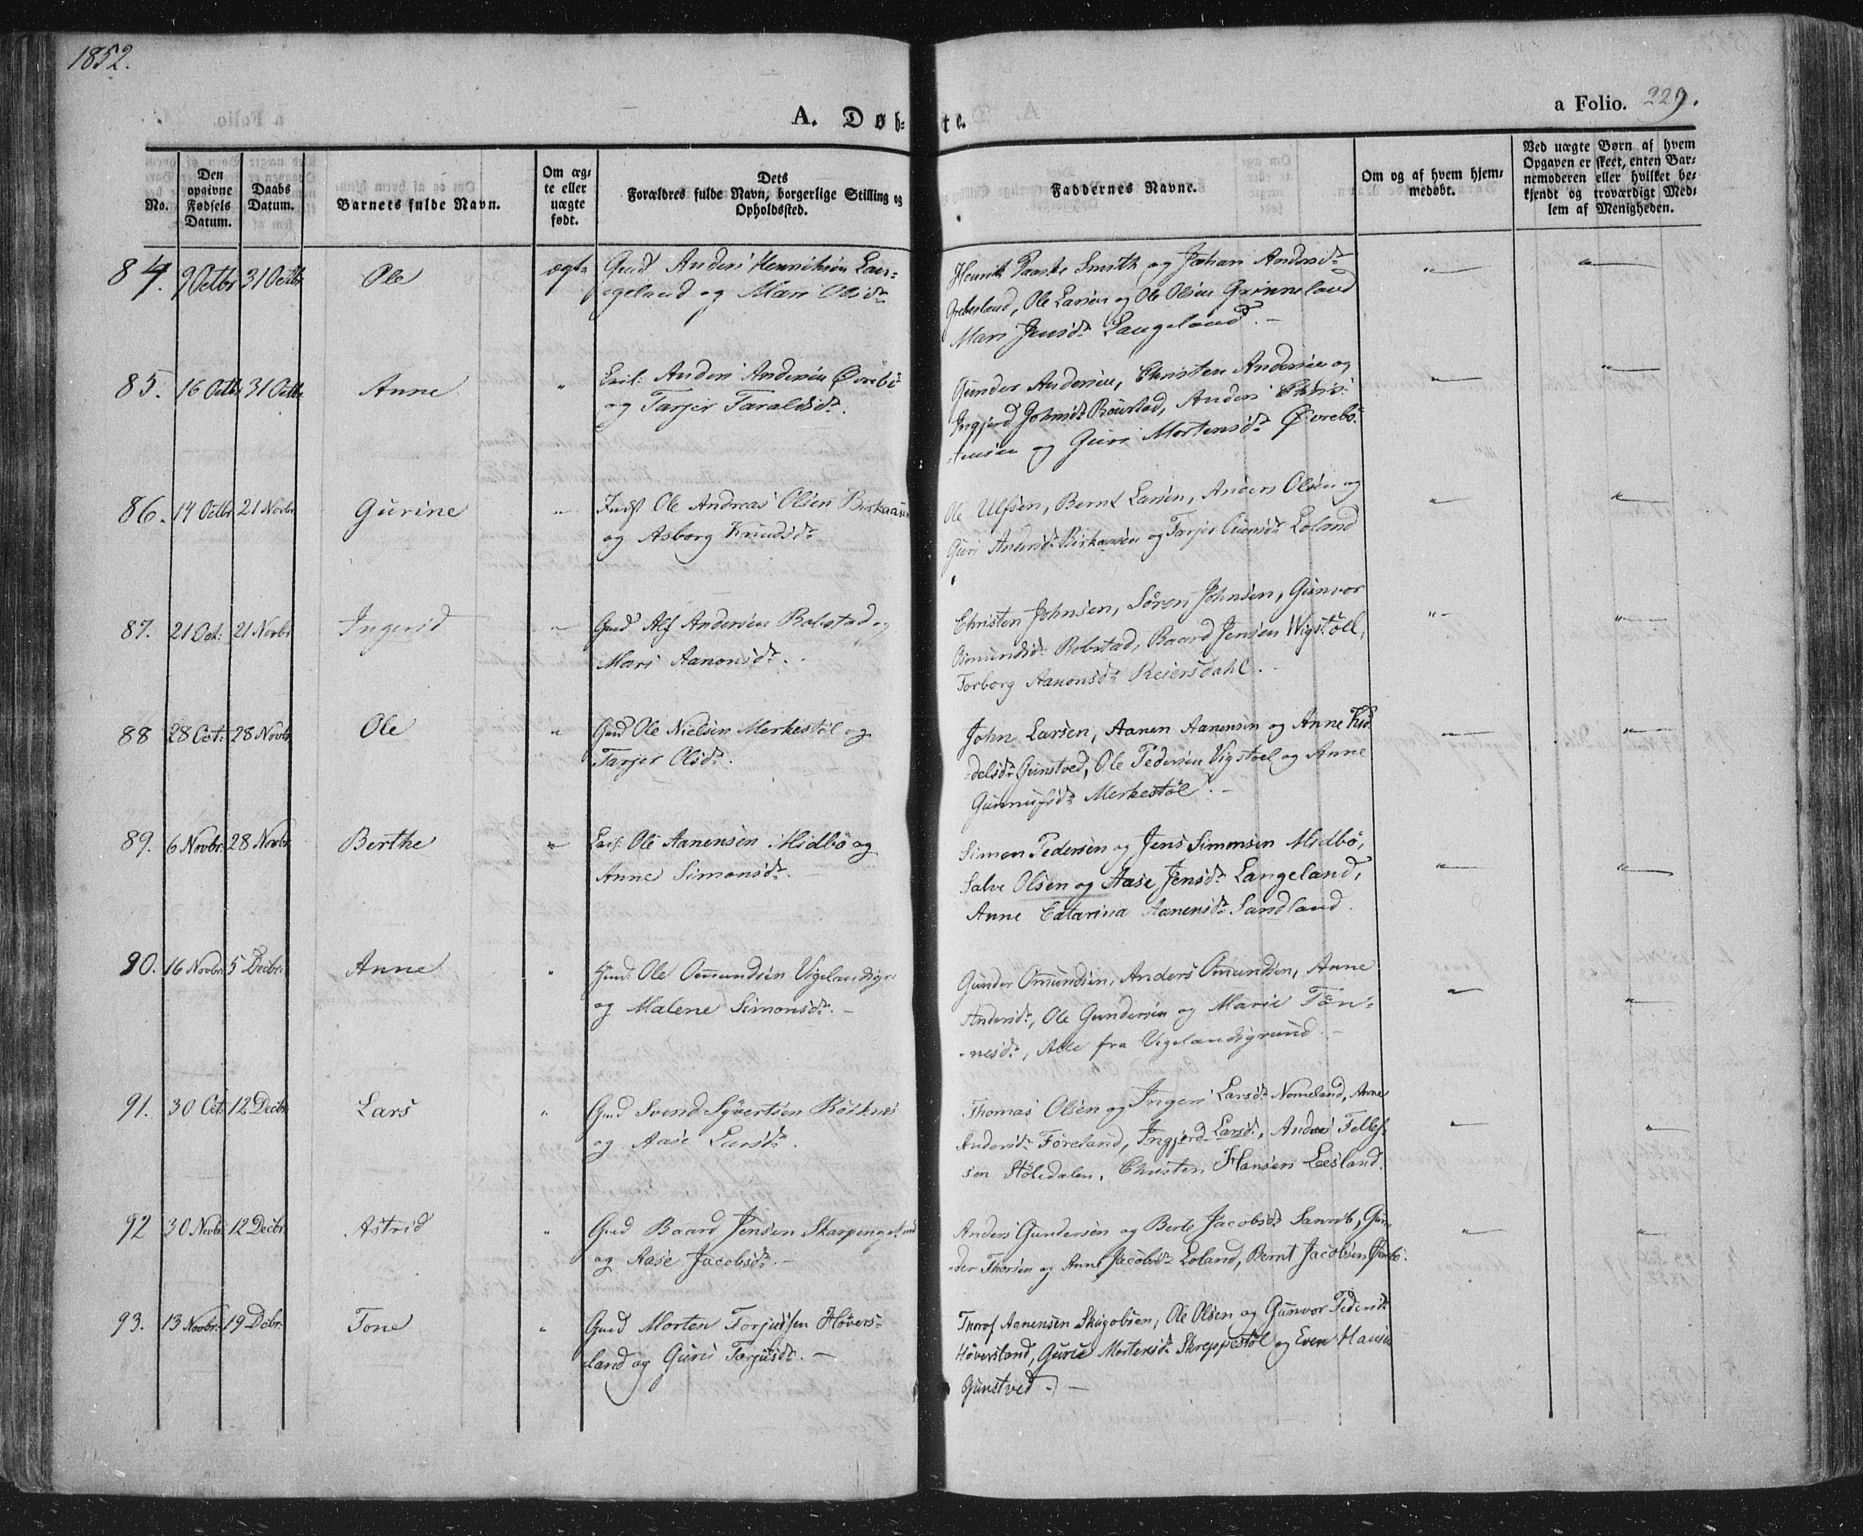 1852.
a Folio. 229.
A. Døb- te.
No.
Den opgivne Fødsels Datum.
Daabs Datum.
Barnets fulde Navn.
Om ægte eller uægte født.
Dets
Forældres fulde Navn, borgerlige Stilling og
Opholdssted.
Faddernes Navne.
Om og af hvem hjem-
medøbt.
Ved uægte Børn af hvem
Opgaven er skeet, enten Bar-
nemoderen eller hvilket be-
kjendt og troværdigt Med-
lem af Menigheden.
84. 9 Octbr 31 Octbr Ole ægte Gmd Anders Henriksen Lan-
geland og Mari Olsdr
Henrik Smith og Johan Andersdr
Grebesland, Ole Larsen og Ole Olsen Grinneland
Mari Jensdr Langeland. -
85. 16 Octb 31 Octbr Anne " Anders Andersen Øvrebö
og Tarjer Taraldsdr.
Gunder Andersen, Christen Andersen og
Ingjerd Johnsdr Boustad, Anders Chris-
tensen og Guri Mortensdr Øvrebö.
86. 14 Octbr 21 Novbr Gurine " Ole Andreas Olsen Birkaasen
og Asborg Knudsdr
Ole Ulfsen, Bernt Larsen, Anders Olsen og
Guri Andersdr Birkaasen og Tarjer Loland
87. 21 Oct: 21 Novbr Ingerid " Gmd Alf Andersen Robstad og
Mari Aanonsdr.
Christen Johnsen, Sören Johnsen, Gunvor
Omundsdr Robstad, Baard Jensen Wigstöll,
Torborg Aanonsdr Reiersdahl.
88 28 Oct: 28 Novbr Ole " Gmd Ole Nielsen Merkestöl og
Tarjer Olsdr.
John Larsen, Aanen Aanensen og Anne Fid
delsdr Gunstved, Ole Pedersen Vigstoel og Anne
Gunnufsdr Merkestöl. -
89. 6 Novbr. 28 Novbr Berthe " Ole Aanensen Midbö og
Anne Simonsdr. -
Simon Pedersen og Jens Simonsen Midbö,
Salve Olsen og Aase Jensdr Langeland,
Anne Catarina Aanensdr Sandland.
90. 16 Novbr. 5 Decbr. Anne " Ole Omundsen Vigelandsgr:
og Malene Simonsdr. -
Gunder Omundsen, Anders Omundsen, Anne
Andersdr, Ole Gundersen og Marie Tön-
nesdr, Alle fra Vigelandsgrund. -
91. 30 Oct. 12 Decbr Lars " Gmd Svend Syvertsen Röiknes
og Aase Larsdr.
Thomas Olsen og Inger Larsdr Nomeland, Anne
Andersdr Föreland, Ingjerd Larsdr, Anders Tellef-
sen Stöledalen, Christen Hansen Leesland.
92 30 Novbr 12 Decbr. Astrid " Gmd Baard Jensen Skarpengeland
og Aase Jacobsdr. -
Anders Gundersen og Berte Jacobsdr Gun-
der Thorsen og Anne Jacobsdr Loland, Bernt Jacobsen
93. 13 Novbr. 19 Debr. Tone " Gmd Morten Torjussen Hövers-
land og Guri Torjusdr. -
Thorof Aanensen Skugobsen, Ole Olsen og Gunvor Pedersdr
Höversland, Gurie Mortensdr Skreppestöl og Even Hansen
Gunstved. -